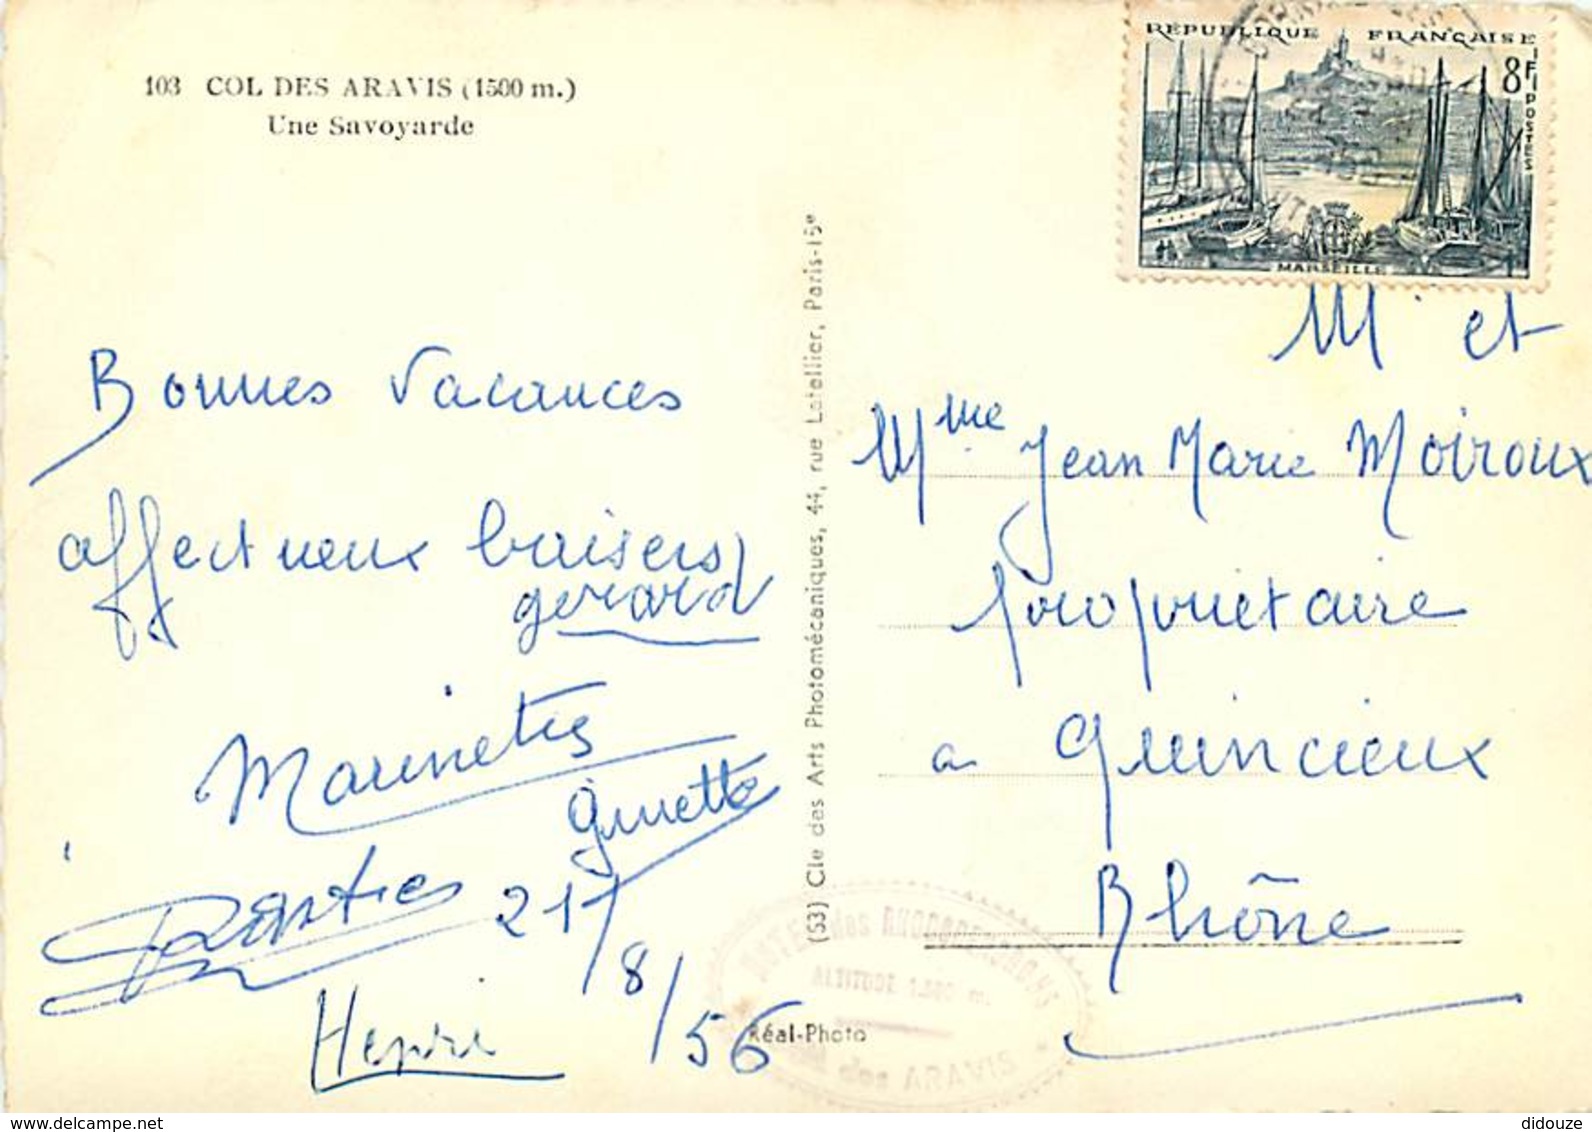 103 COL DES ARAVIS (1500 m.)
Une Savoyarde
RÉPUBLIQUE FRANÇAISE
8F
POSTES
MARSEILLE
Bonnes Vacances
affectueux baisers
gerard
Marinette
ginette
21/8/56
Henri
(53) Cie des Arts Photomécaniques, 44, rue Letellier, Paris-15e
Réal-Photo
M et
Mme Jean Marie Moiroux
propriétaire
a Quincieux
Rhône
didouze